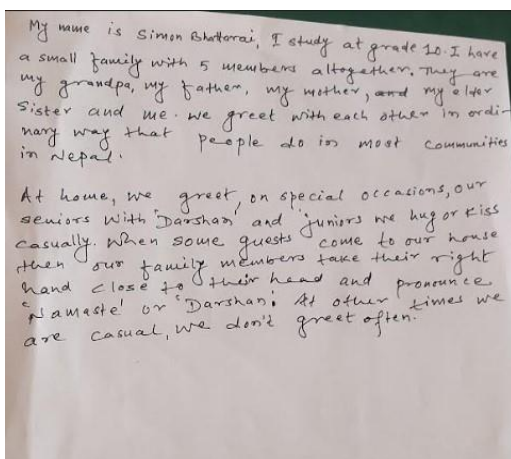 My name is Simon Bhattarai, I study at grade 10. I have
a small family with 5 members altogether. They are
my grandpa, my father, my mother, and my elder
sister and me. we greet with each other in ordi-
nary way that people do in most communities
in Nepal.
At home, we greet, on special occasions, our
seniors with 'Darshan' and juniors we hug or kiss
casually. When some guests come to our house
then our family members take their right
hand close to their head and pronounce
'Namaste' or 'Darshan'. At other times we
are casual, we don't greet often.